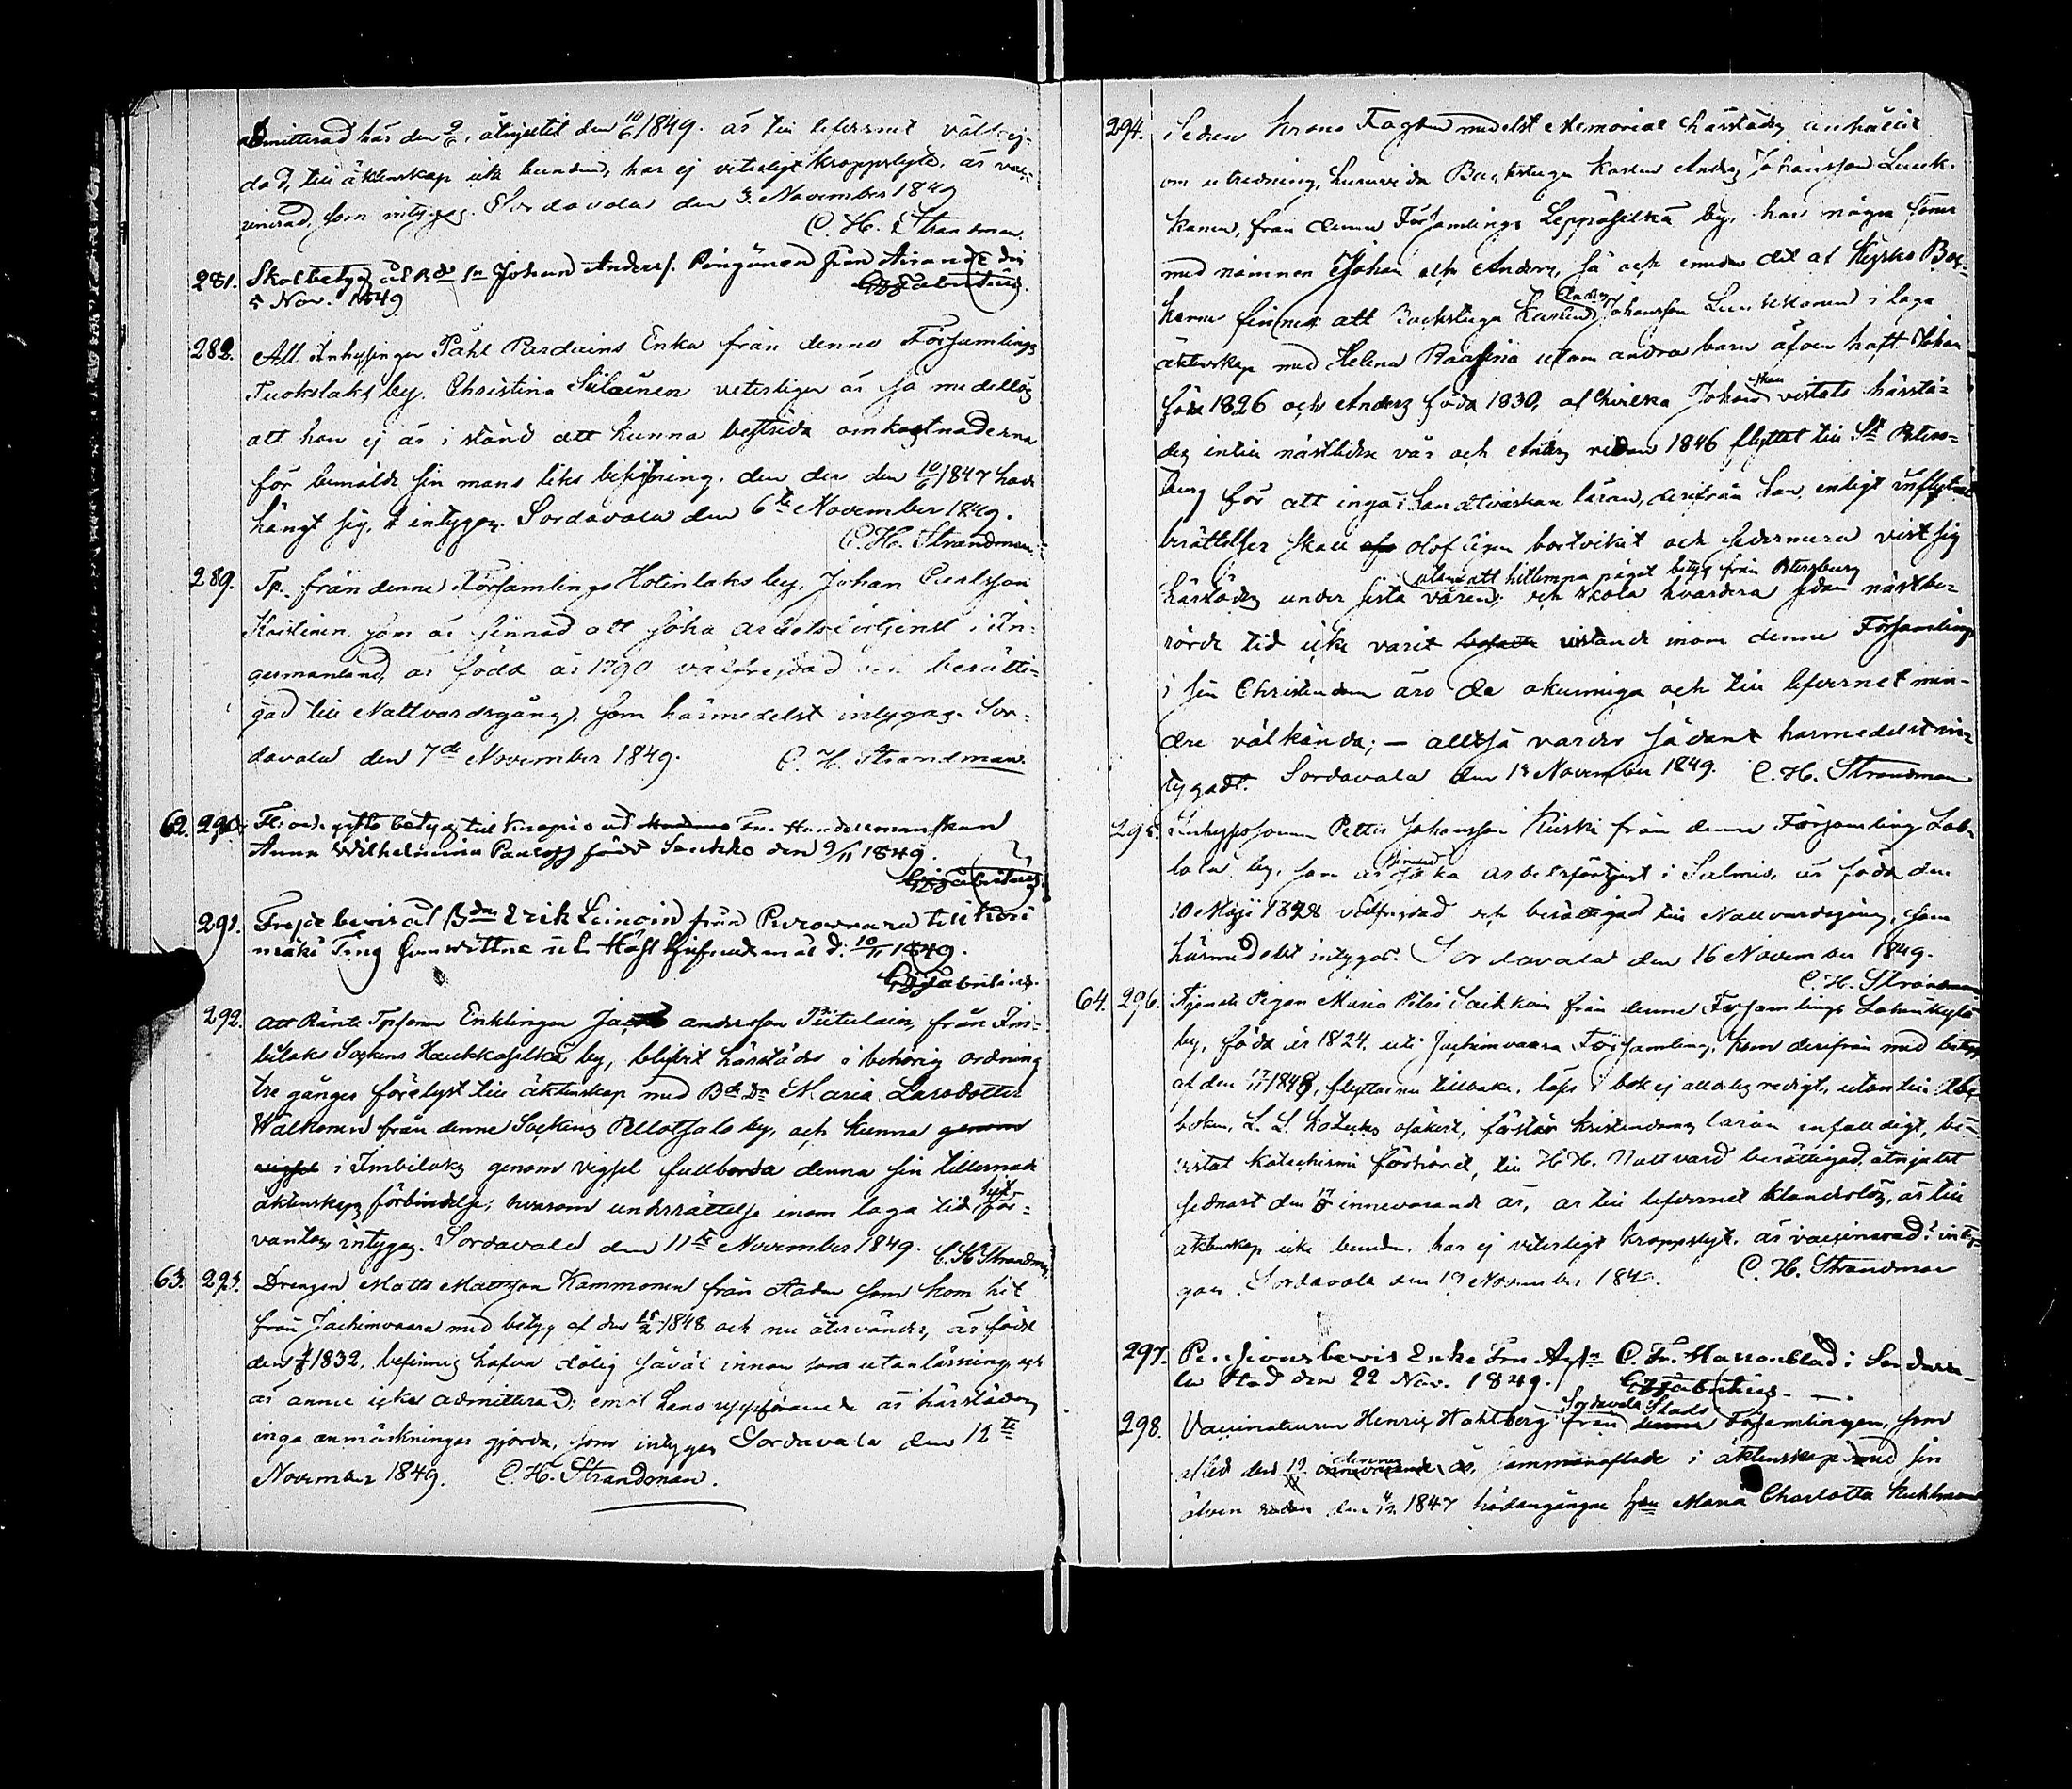 admitterad här den 9/6, åtnjutit den 10/6 1849. är till lefvernet välfrej-
dad, till äktenskap icke bunden, har ej veterligt kroppslyte, är vac-
cinerad, som intygas. Sordavala den 3. November 1849
C. H. Strandman.
281. Skolbetyg åt Bde Sn Johan Anders. Pöngönen från Airanne den
5 Nov. 1849
288. Att Inhysingen Påhl Pardains Enka från denne Församlings
Tuokslaks by, Christina Sulainen veterligen är så medellös
att hon ej är i stånd att kunna bestrida omkostnaderna
för bemälde sin mans liks besigtning, den der den 10/6 1847 hade
hängt sig, intygas. Sordavala den 6te November 1849.
C. H. Strandman.
289. Tp. från denne Församlings Hotinlaks by, Johan Carlsson
som är sinnad att söka arbetsförtjenst i In-
germanland, är född år 1790 välfrejdad och berätti-
gad till Nattvardsgång, som härmedelst intygas. Sor-
davala den 7de November 1849. C. H. Strandman.
62. 290. betyg till Kuopio åt Handelsmanskan
Anna Wilhelmina född Saukko den 9/11 1849.
291. Frejdebevis åt Bdn Erik Leinoin från till
mäki Ting d. 10/11 1849.
292. Att Ränte Tpsonen Enklingen Jacob andersson Piitulain, från Im-
bilaks Sockens Haukkaselkä by, blifvit härstädes i behörig ordning
tre gånger förelyst till äktenskap med Bde Dn Maria Larsdotter
Walkonen från denne Sockens Pellotsalo by, och kunna genom
vigsel i Imbilaks genom vigsel fullborda denna sin tillernade
äktenskaps förbindelse; hvarom underrättelse inom laga tid hit för-
väntas, intygas. Sordavala den 11te November 1849. C. H. Strandman
63. 293. Drengen Matts Mattsson Kammonen från staden som kom hit
från Jackimvaara med betyg af den 15/2 1848 och nu återvänder, är född
den 1832, befinnes hafva dålig såväl innan som utanläsning och
är ännu icke admitterad; emot hans uppförande är härstädes
inga anmärkningar gjorda, som intygas Sordavala den 12te
November 1849. C. H. Strandman.
294. Sedan Krono Fogden medelst Memorial härstädes anhållit
om utredning, huruvida Backstugu Karlen Anders Johansson Luuk-
kanen, från denne Församlings Leppäselkä by, har några söner
med namnen Johan och Anders, så och emedan det af Kyrko Böc-
kerna finnes att Backstugu Karlen Anders Johansson Luukkanen i laga
äktenskap med Helena Raasina utom andra barn äfven haft Johan
född 1826 och Anders född 1830, af hvilka Johan skall vistats härstä-
des intill nästlidne vår och Anders redan 1846 flyttat till St Peters-
burg för att ingå i handtverkare läran, derifrån han, enligt
berättelser skall olofligen bortvikit och sedermera vist sig
härstädes under sista våren, utan att hitlemna något betyg från Petersburg
och skola hvardera sedan nästbe-
rörde tid icke varit vistande inom denne Församling
i sin Christendom äro de okunniga och till lefvernet min-
dre välkända; — alltså varder sådant härmedelst in-
tygadt. Sordavala den 1 November 1849. C. H. Strandman
295. Inhyssonen Petter Johansson Kiiski från denne Församling
by, som är sinnad söka arbetsförtjenst i Salmis, är född den
10 Maji 1828 välfrejdad och berättigad till Nattvardsgång, som
härmedelst intygas. Sordavala den 16 November 1849.
C. H. Strandman
64. 296. Tjenste Pigan Maria Petri Saikkoin från denne Församlings
by, född år 1824, uti Jackimvaara Församling, kom derifrån med betyg
af den 17/11 1848, flyttar nu tillbaka, läser i bok ej alldeles redigt, utantill Abc
boken, L. L. Kateches osäkert, förstår kristendoms läran enfaldigt, be-
vistat Katechismi förhöret, till H. H. Nattvard berättigad, åtnjutit
sednast den innevarande år, är till lefvernet klanderlös, är till
äktenskap icke bunden, har ej veterligt kroppslyte, är vaccinerad: inty-
gas. Sordavala den 19 November 184 . C. H. Strandman
297. Pensionsbevis Enke Fru C. Fr. Masonblad i Sordava-
la Stad den 22 Nov. 1849.
298. Vaccinateuren Henric Hahlberg från Sordavala Stads Församlingen, som
afled den 19 denne år, sammanaflade i äktenskap med sin
den 4/12 1847 hädangångne Maria Charlotta